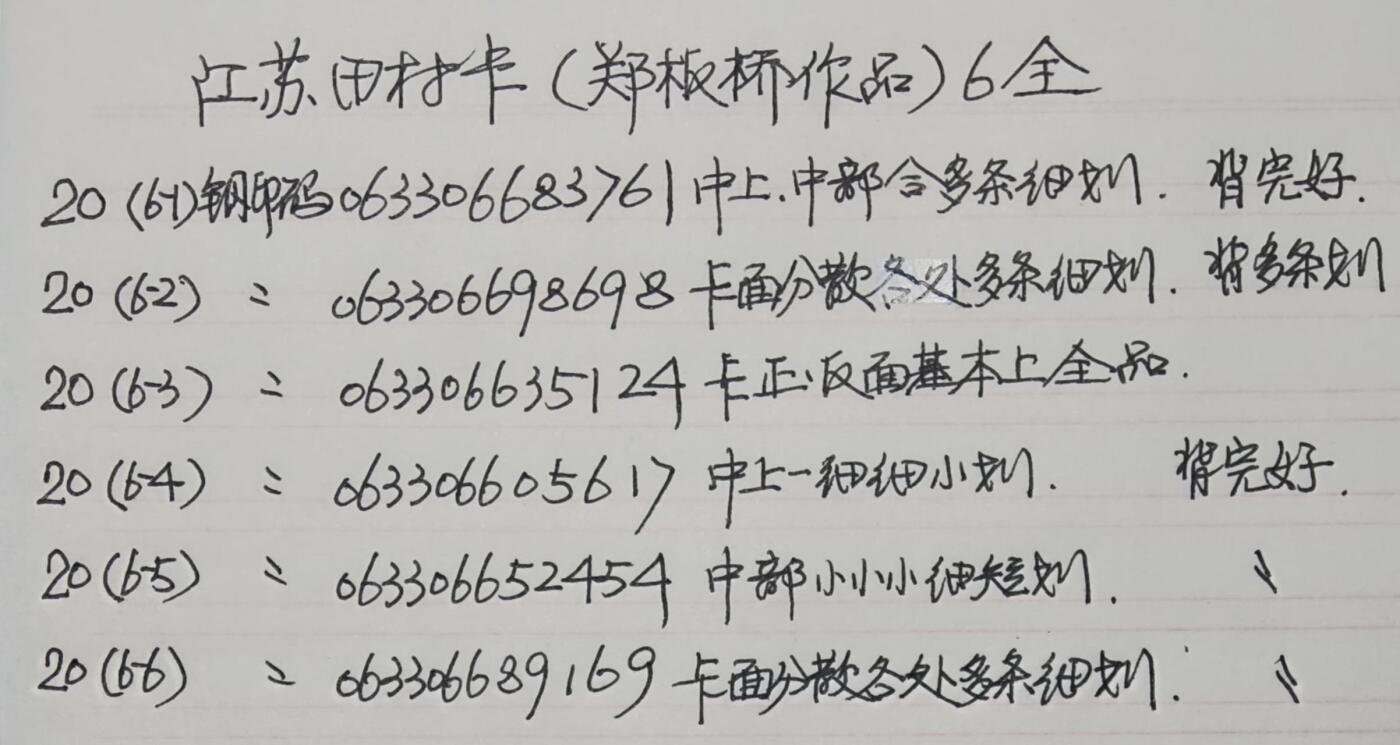 江苏田村卡(郑板桥作品)6全
20(6-1)钢印码063306683761中上.中部合多条细划. 背完好.
20(6-2) 〃 063306698698卡面分散各处多条细划. 背多条划
20(6-3) 〃 063306635124卡正.反面基本上全品.
20(6-4) 〃 063306605617中上一细细小划. 背完好.
20(6-5) 〃 063306652454中部小小小细短划. 〃
20(6-6) 〃 063306689169卡面分散各处多条细划. 〃